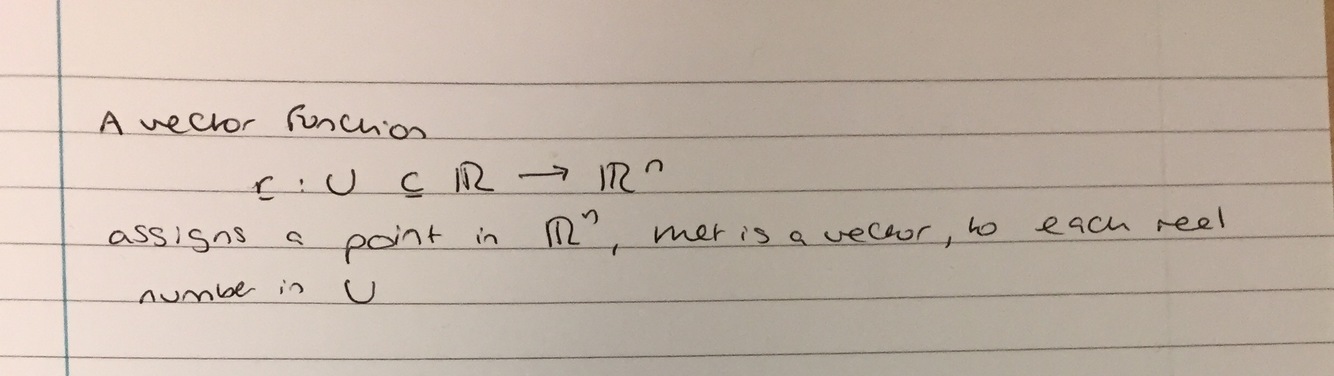 A vector function
r : U ⊆ ℝ → ℝⁿ
assigns a point in ℝⁿ, that is a vector, to each real
number in U